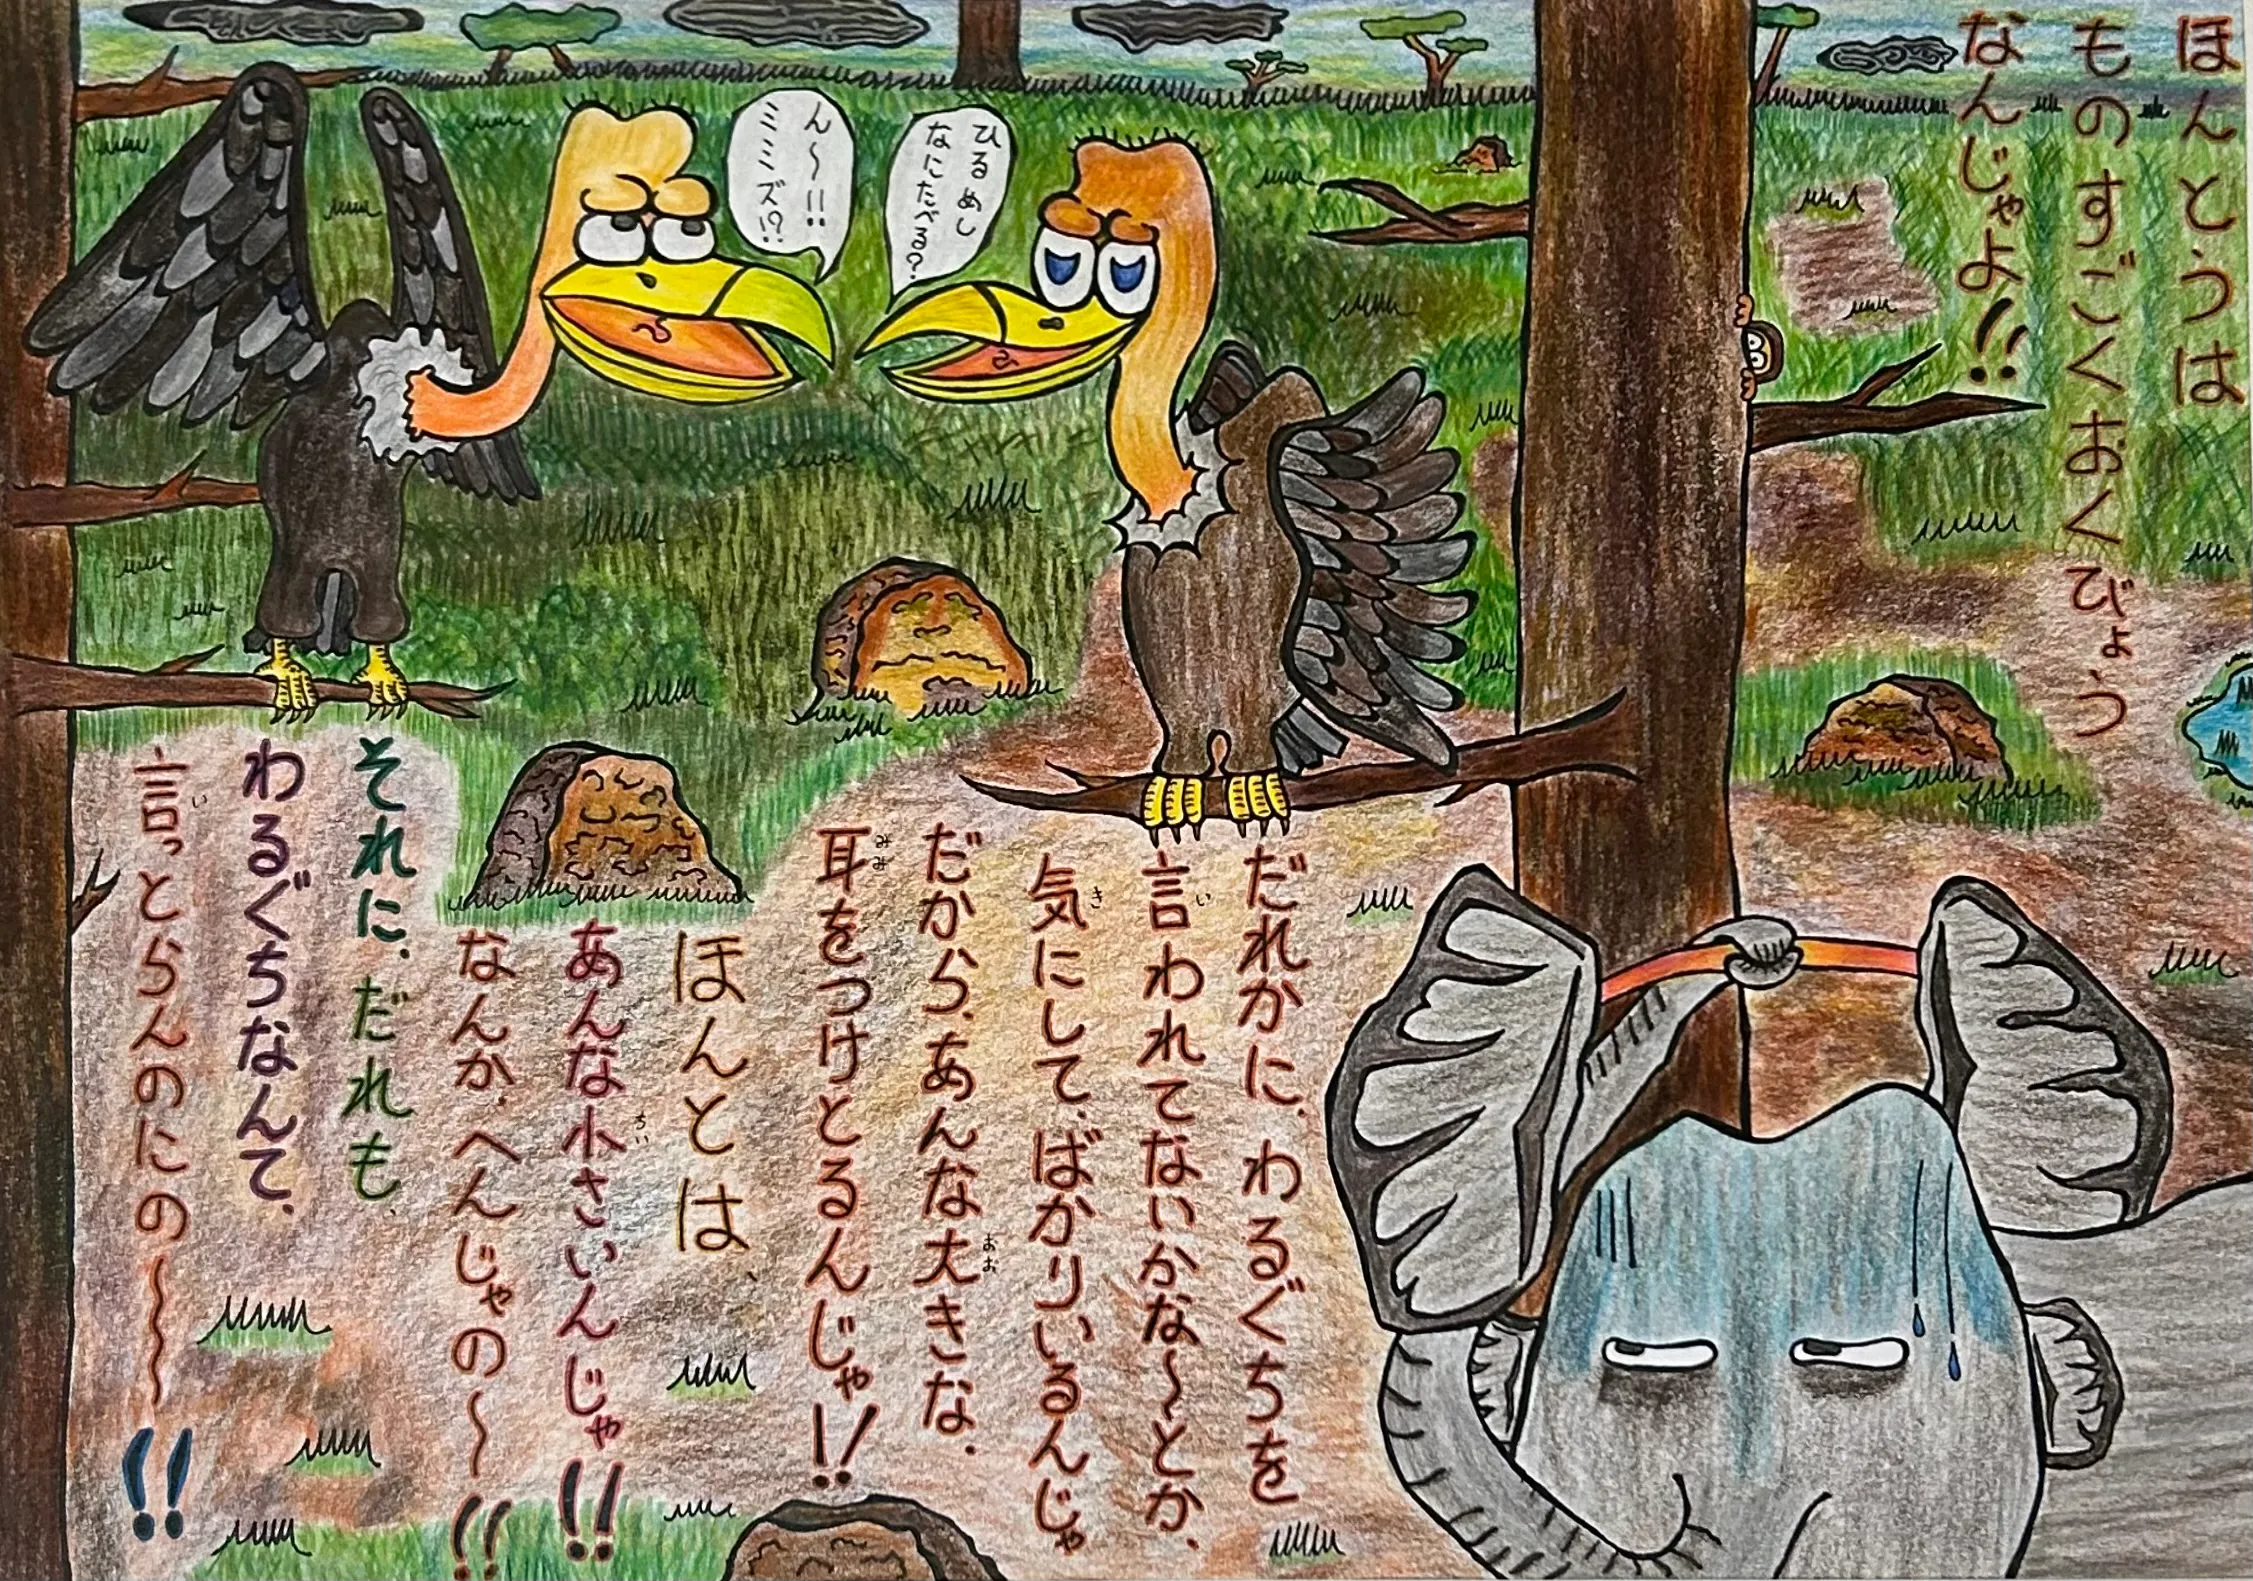 ほんとうは
ものすごくおくびょう
なんじゃよ!!
ひるめし
なにたべる?
ん〜!!
ミミズ!?
だれかに、わるぐちを
言われてないかな〜とか、
気にして、ばかりいるんじゃ
だから、あんな大きな、
耳をつけとるんじゃ!!
ほんとは、
あんな小さいんじゃ!!
なんか、へんじゃの〜!!
それに、だれも、
わるぐちなんて、
言っとらんのにの〜!!